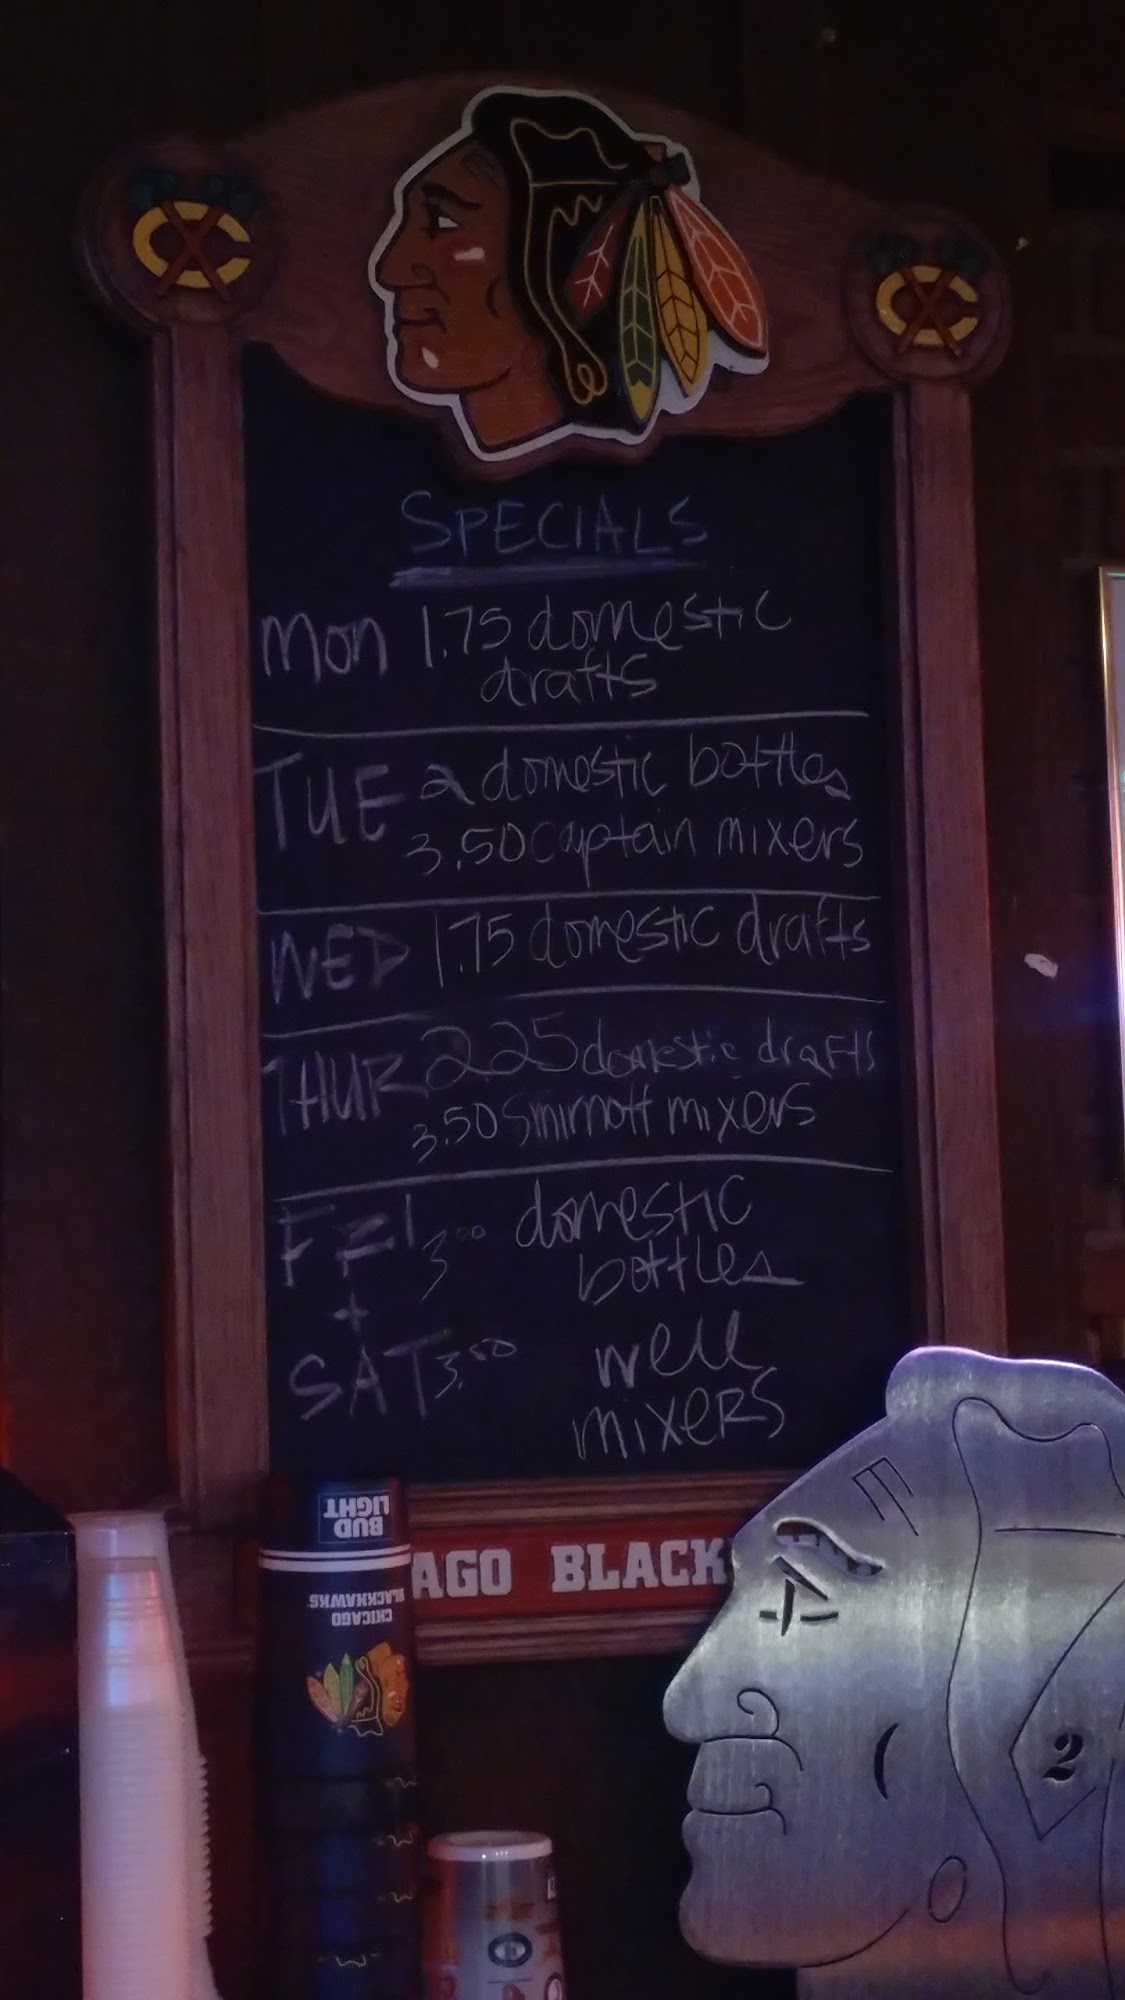 SPECIALS
Mon 1.75 domestic
drafts
TUE 2 domestic bottles
3.50 captain mixers
WED 1.75 domestic drafts
THUR 2.25 domestic drafts
3.50 Smirnoff mixers
FRI 3.00 domestic
bottles
+
SAT 3.50 well
mixers
BUD
LIGHT
CHICAGO
BLACKHAWKS
AGO BLACK
2